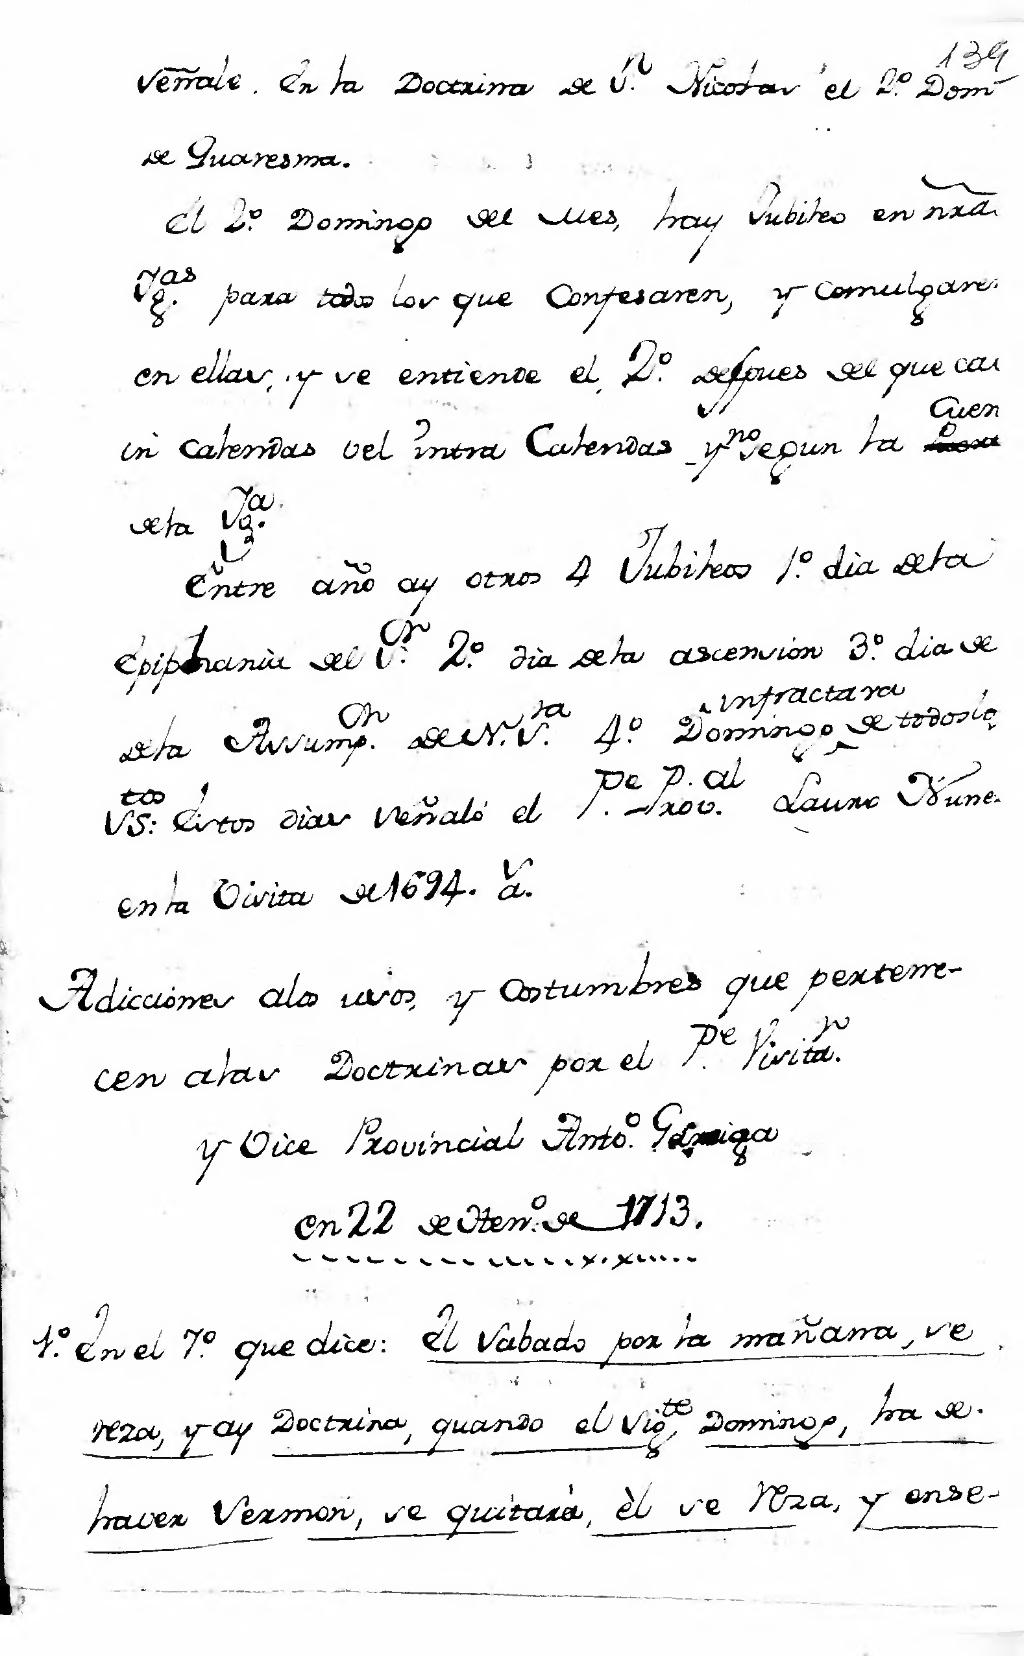 139
señale. En la Doctrina de Sn. Nicolas el 2º. Domº
de Quaresma.
El 2º. Domingo del Mes, hay Jubileo en nrãs
Yglas. para todos los que Confesaren, y comulgaren
en ellas, y se entiende el 2º. despues del que cai
in Calendas vel intra Calendas y no segun la Cuen
dela Yga.
Entre año ay otros 4 Jubileos 1º. dia dela
Epiphania del Sr. 2º. dia dela ascension 3º. dia de
dela Assumpon. de N. Sra. 4º. Domingo infractava de todos los
Stos: Estos dias señaló el Pe. Proval. Lauro Nuñe
en la Visita de 1694. Sa.
Adicciones alos usos, y Costumbres que pertene-
cen alas Doctrinas por el Pe. Visitar.
y Vice Provincial Anto. Garriga
en 22 de Hen.º de 1713.
1º. En el 7º. que dice: El Sabado por la mañana, se
reza, y ay Doctrina, quando el sigte. Domingo, ha de
haver Sermon, se quitará, èl se reza, y ense-